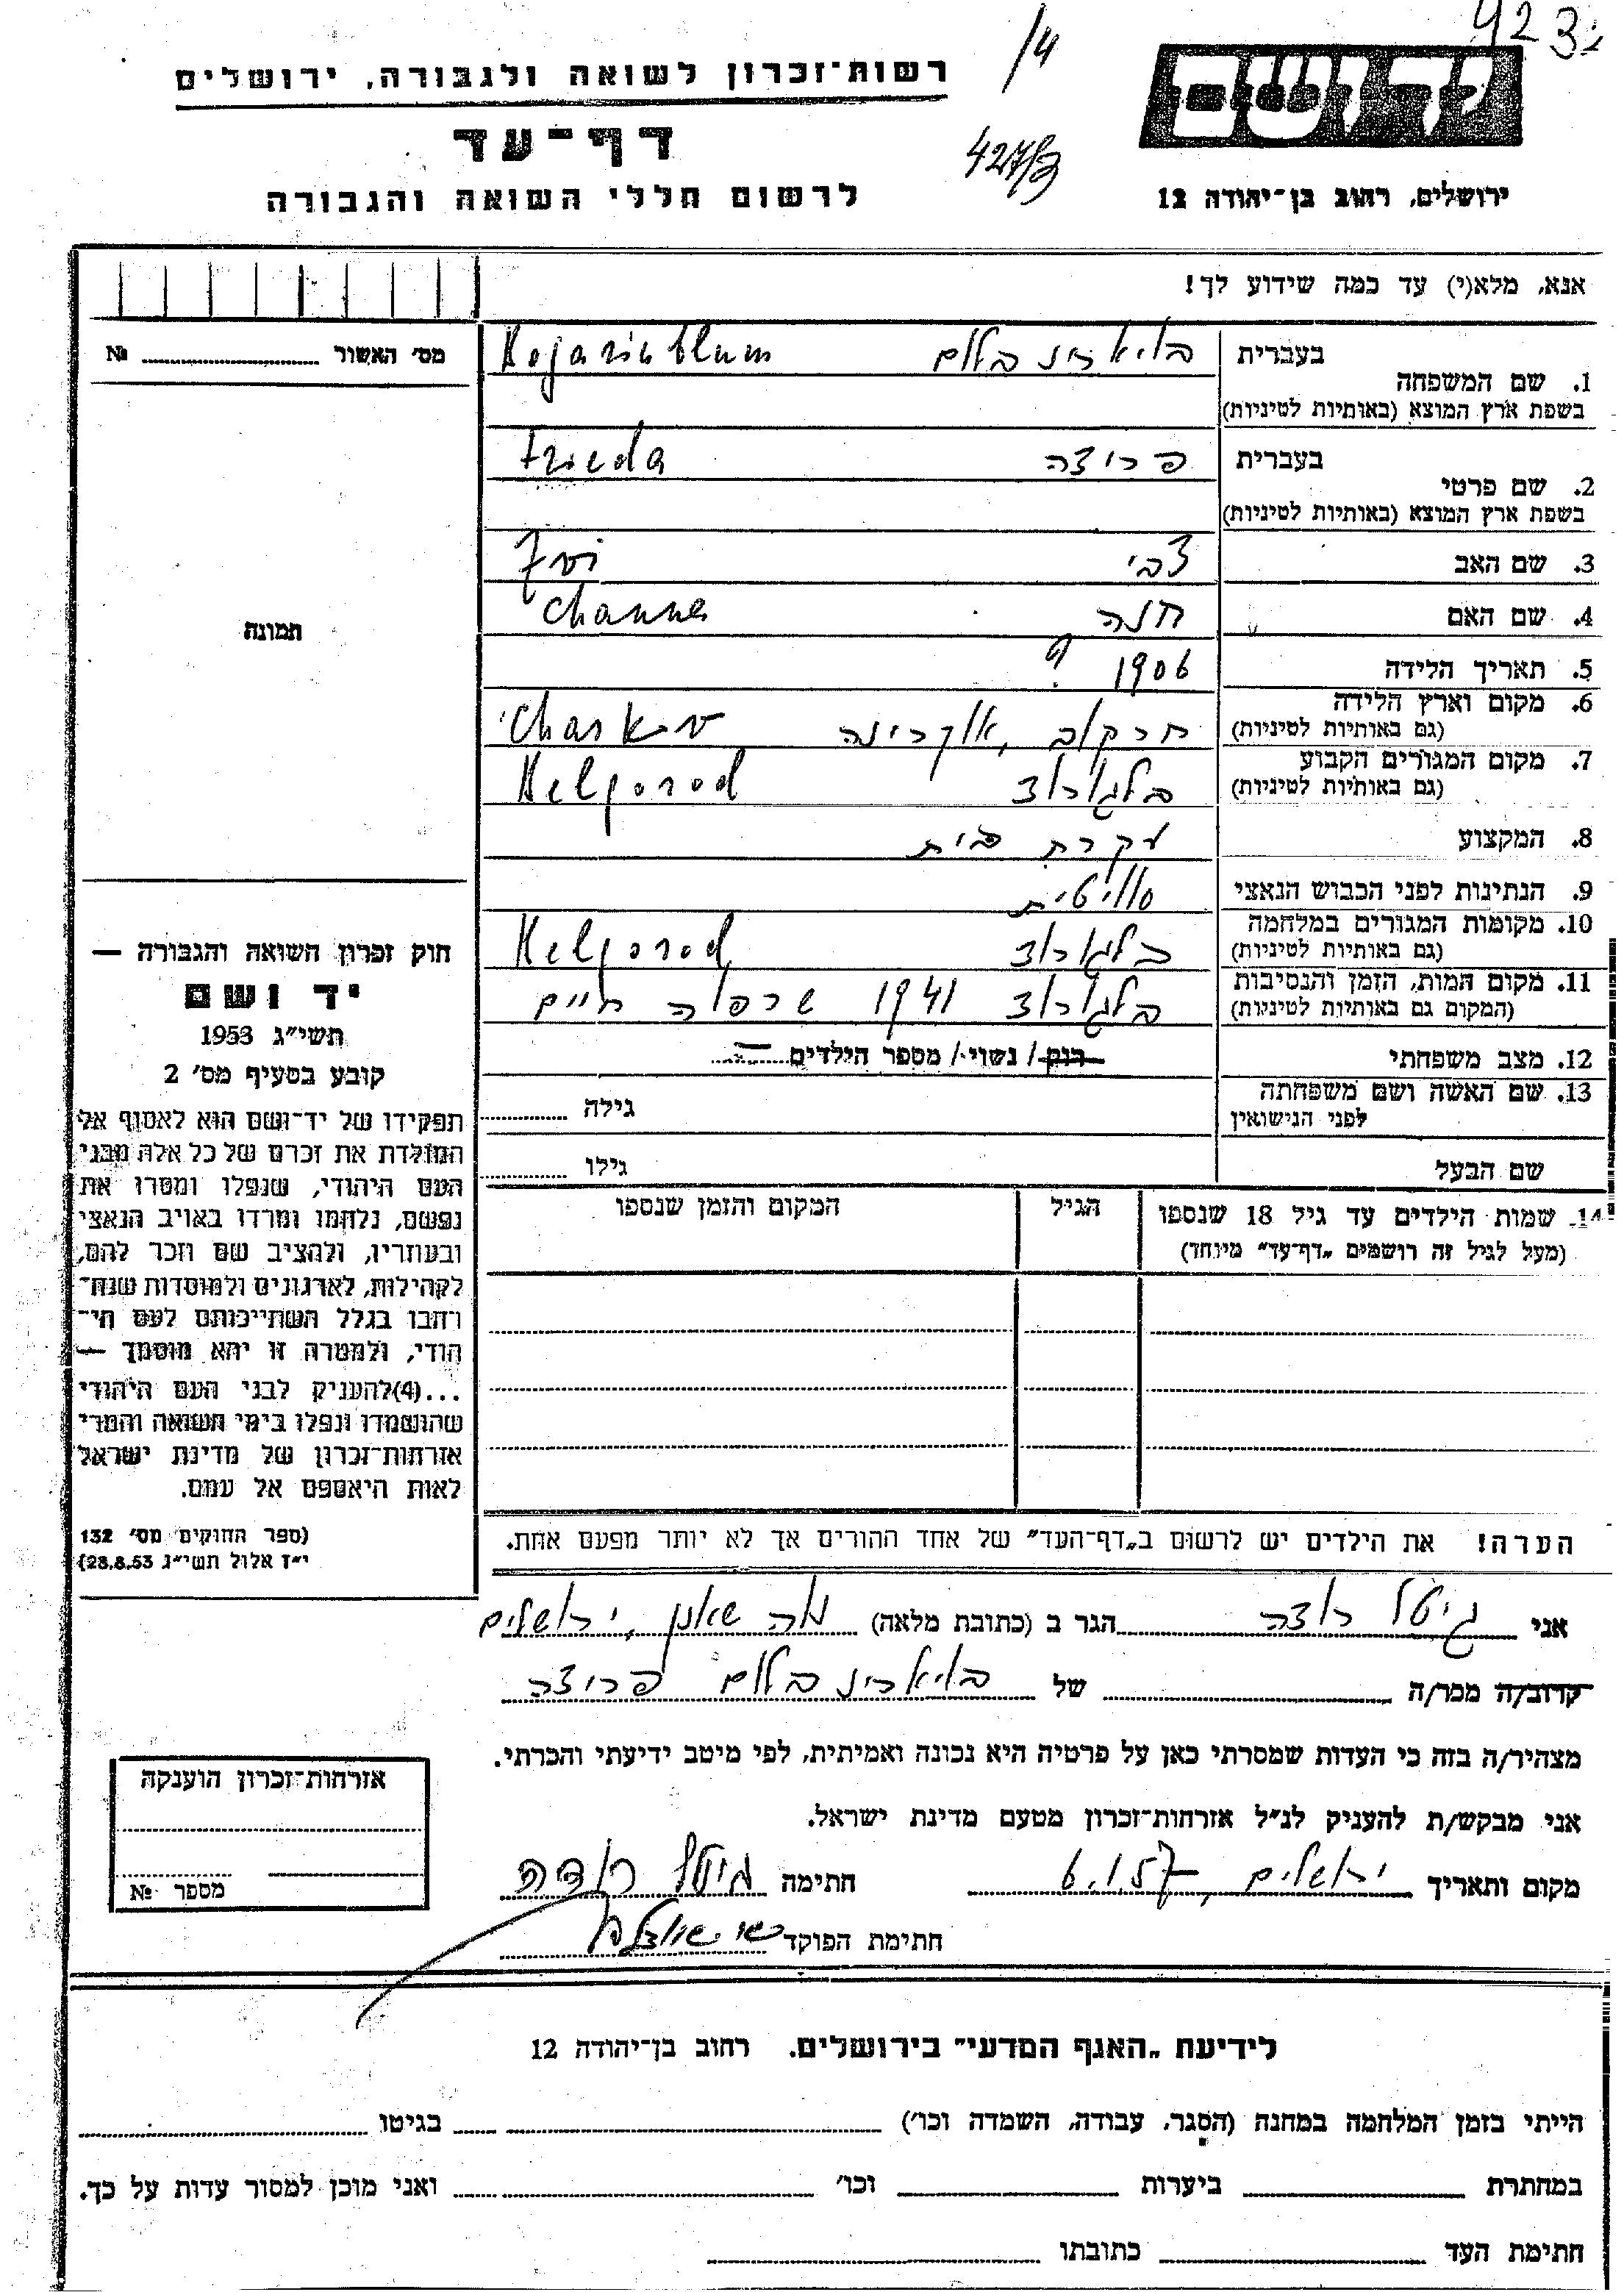 923
/4
רשות־זכרון לשואה ולגבורה, ירושלים
יד ושם
דף־עד
427/3
לרשום חללי השואה והגבורה
ירושלים, רחוב בן־יהודה 12
אנא, מלא(י) עד כמה שידוע לך!
מס׳ האשור № 
1. שם המשפחה בעברית
בשפת ארץ המוצא (באותיות לטיניות)
2. שם פרטי בעברית פרידה Frieda
בשפת ארץ המוצא (באותיות לטיניות)
3. שם האב צבי Zvi
4. שם האם חנה Channa
5. תאריך הלידה 1906 ?
6. מקום וארץ הלידה חרקוב, אוקרינה Charkov
(גם באותיות לטיניות)
7. מקום המגורים הקבוע בלגורוד Belgorod
(גם באותיות לטיניות)
8. המקצוע עקרת בית
9. הנתינות לפני הכבוש הנאצי סוויטית
10. מקומות המגורים במלחמה בלגורוד Belgorod
(גם באותיות לטיניות)
11. מקום המות, הזמן והנסיבות בלגורוד 1941 שרפוה חיים
(המקום גם באותיות לטיניות)
12. מצב משפחתי רווק/ נשוי/ מספר הילדים
13. שם האשה ושם משפחתה גילה
לפני הנישואין
שם הבעל גילו
14. שמות הילדים עד גיל 18 שנספו הגיל המקום והזמן שנספו
(מעל לגיל זה רושמים „דף־עד״ מיוחד)
הערה! את הילדים יש לרשום ב„דף־העד״ של אחד ההורים אך לא יותר מפעם אחת.
תמונה
חוק זכרון השואה והגבורה —
יד ושם
תשי״ג 1953
קובע בסעיף מס׳ 2
תפקידו של יד־ושם הוא לאסוף אל
המולדת את זכרם של כל אלה מבני
העם היהודי, שנפלו ומסרו את
נפשם, נלחמו ומרדו באויב הנאצי
ובעוזריו, ולהציב שם וזכר להם,
לקהילות, לארגונים ולמוסדות שנח־
רחבו בגלל השתייכותם לעם הי־
הודי, ולמטרה זו יהא מוסמך —
...(4)להעניק לבני העם היהודי
שהושמדו ונפלו בימי השואה והמרי
אזרחות־זכרון של מדינת ישראל
לאות היאספם אל עמם.
(ספר החוקים מס׳ 132
י״ז אלול תשי״ג 28.8.53)
אני גיטל הגר ב (כתובת מלאה) נוה שאנן, ירושלים
קרוב/ה מכר/ה של
מצהיר/ה בזה כי העדות שמסרתי כאן על פרטיה היא נכונה ואמיתית, לפי מיטב ידיעתי והכרתי.
אני מבקש/ת להעניק לנ״ל אזרחות־זכרון מטעם מדינת ישראל.
מקום ותאריך ירושלים, 6.1.57 חתימה גיטל
חתימת הפוקד
אזרחות־זכרון הוענקה
מספר №
לידיעת „האגף המדעי״ בירושלים. רחוב בן־יהודה 12
הייתי בזמן המלחמה במחנה (הסגר, עבודה, השמדה וכו׳) בגיטו
במחתרת ביערות וכו׳ ואני מוכן למסור עדות על כך.
חתימת העד כתובתו